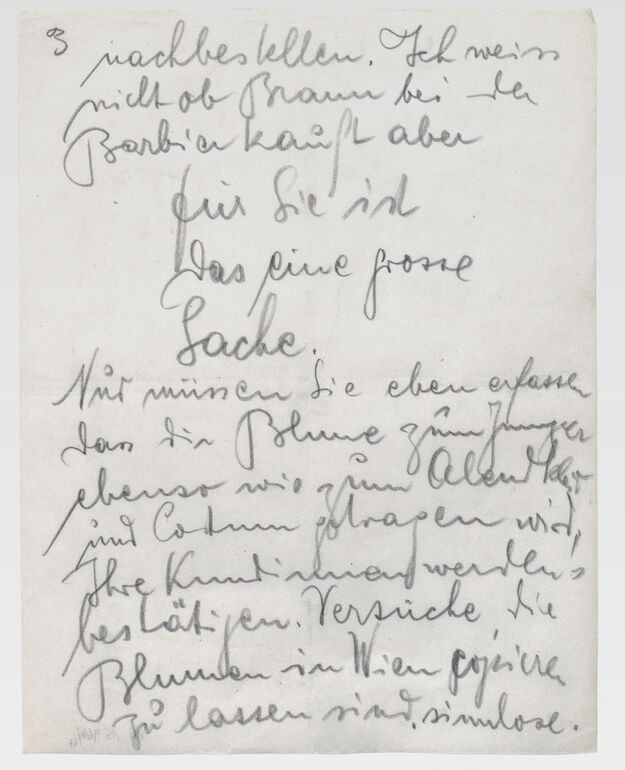 3
nachbestellen. Ich weiss
nicht ob Braun bei der
Barbier kauft aber
für Sie ist
das eine grosse
Sache.
Nur müssen Sie eben erfassen
dass die Blume zum Jumper
ebenso wie zum Abendkleid
und Costum getragen wird,
Ihre Kundinnen werden's
bestätigen. Versuche, die
Blumen in Wien copieren
zu lassen sind sinnlose.